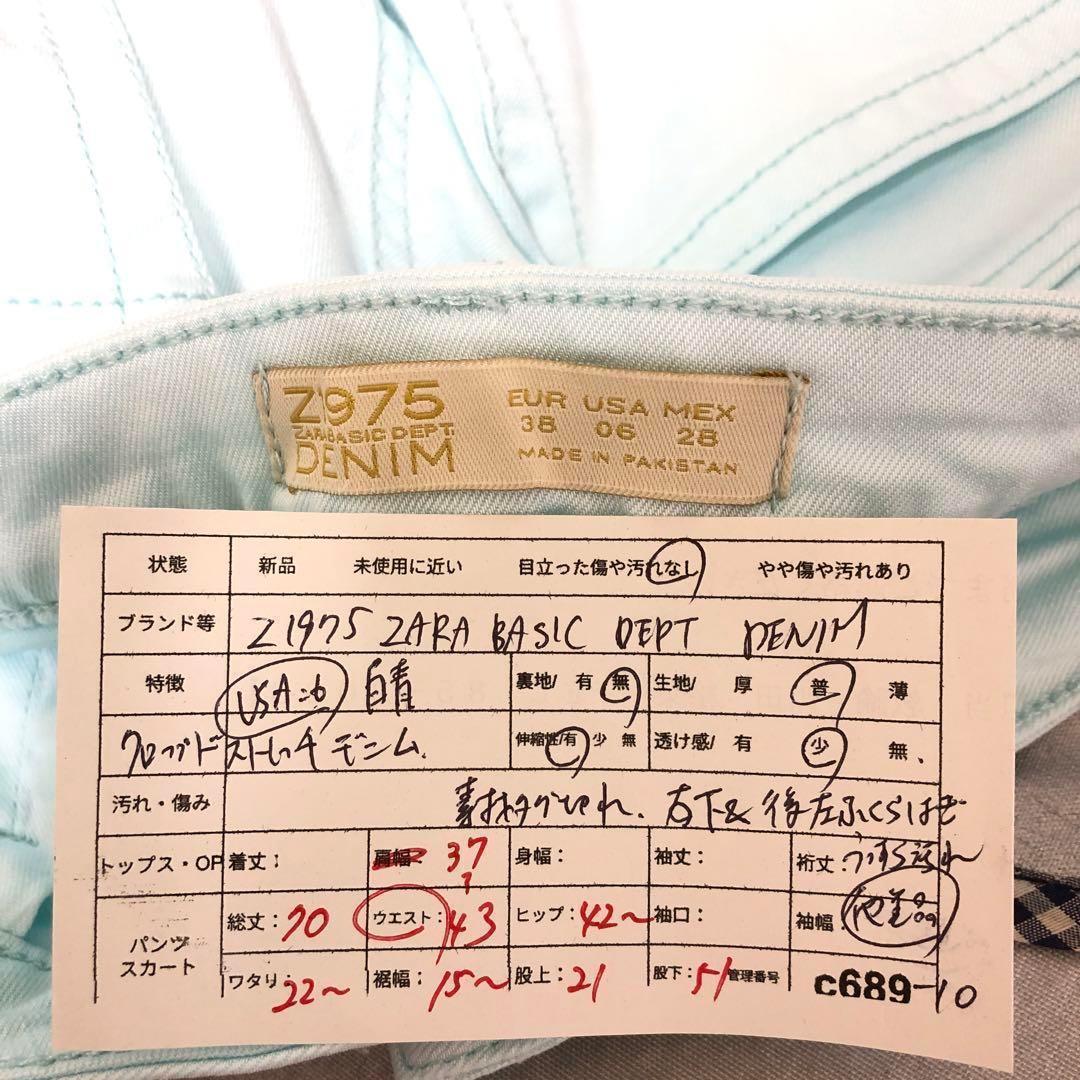 Z1975
ZARA BASIC DEPT.
DENIM
EUR USA MEX
38 06 28
MADE IN PAKISTAN
状態 新品 未使用に近い 目立った傷や汚れなし やや傷や汚れあり
ブランド等 Z1975 ZARA BASIC DEPT DENIM
特徴 USA:6 白青 裏地/ 有 無 生地/ 厚 普 薄
クロップドストレッチデニム. 伸縮性/有 少 無 透け感/ 有 少 無.
汚れ・傷み 素材タグきれ、右下& 後左ふくらはぎ
トップス・OP 着丈: 肩幅: 37 身幅: 袖丈: 裄丈: うすら汚れ
パンツ スカート 総丈:70 ウエスト:43 ヒップ:42〜 袖口: 袖幅: 他美品
ワタリ:22〜 裾幅:15〜 股上:21 股下:51 管理番号 c689-10